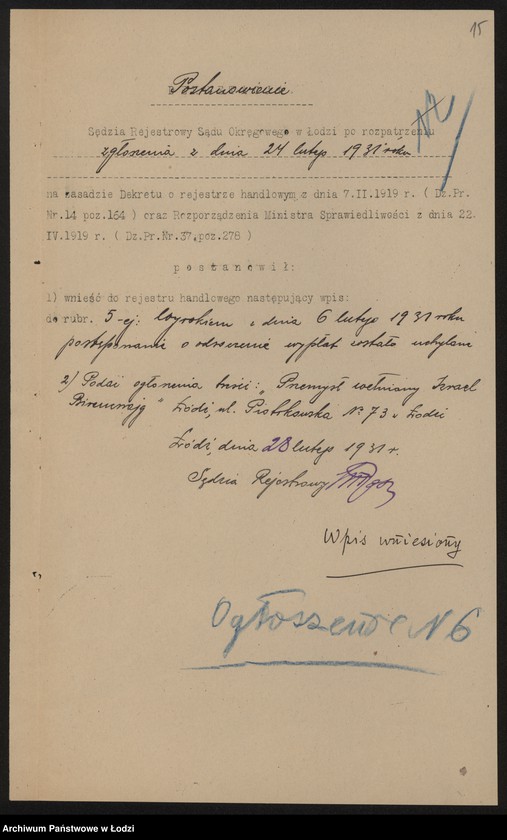 15
Postanowienie.
Sędzia Rejestrowy Sądu Okręgowego w Łodzi po rozpatrzeniu
zgłoszenia z dnia 24 lutego 1931 roku
na zasadzie Dekretu o rejestrze handlowym z dnia 7.II.1919 r. ( Dz.Pr.
Nr.14 poz.164 ) oraz Rozporządzenia Ministra Sprawiedliwości z dnia 22.
IV.1919 r. ( Dz.Pr.Nr.37.poz.278 )
p o s t a n o w i ł :
1) wnieść do rejestru handlowego następujący wpis:
do rubr. 5-ej: Wyrokiem z dnia 6 lutego 1931 roku
postępowanie o odroczenie wypłat zostało uchylone
2) Podać ogłoszenia treści: „Przemysł wełniany Izrael
" Łódź, ul. Piotrkowska Nr. 73 w Łodzi
Łódź, dnia 28 lutego 1931 r.
Sędzia Rejestrowy
Wpis wniesiony
Ogłoszenie N 6
Archiwum Państwowe w Łodzi